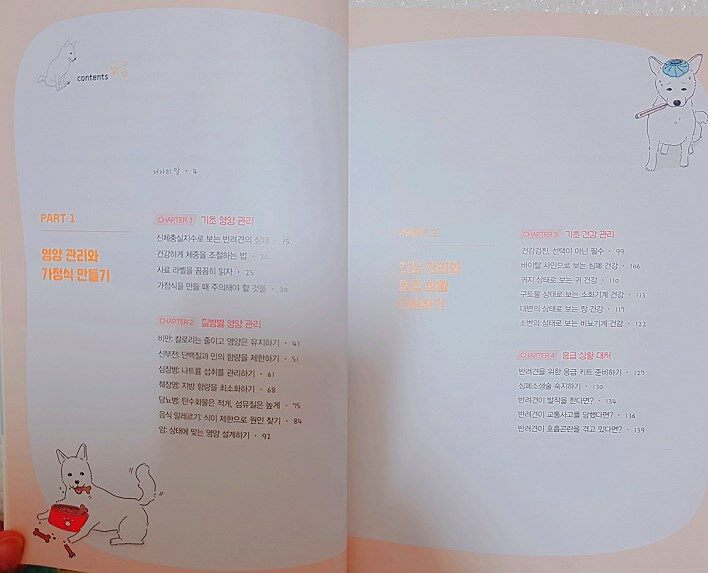 contents 목차
저자의 말 · 4
PART 1
영양 관리와
가정식 만들기
CHAPTER 1 기초 영양 관리
신체충실지수로 보는 반려견의 상태 · 15
건강하게 체중을 조절하는 법 · 20
사료 라벨을 꼼꼼히 읽자 · 25
가정식을 만들 때 주의해야 할 것들 · 30
CHAPTER 2 질병별 영양 관리
비만: 칼로리는 줄이고 영양은 유지하기 · 41
신부전: 단백질과 인의 함량을 제한하기 · 51
심장병: 나트륨 섭취를 관리하기 · 61
췌장염: 지방 함량을 최소화하기 · 68
당뇨병: 탄수화물은 적게, 섬유질은 높게 · 75
음식 알레르기: 식이 제한으로 원인 찾기 · 84
암: 상태에 맞는 영양 설계하기 · 92
PART 2
건강 관리와
응급 상황
대처하기
CHAPTER 3 기초 건강 관리
건강검진, 선택이 아닌 필수 · 99
바이탈 사인으로 보는 심폐 건강 · 106
귀지 상태로 보는 귀 건강 · 110
구토물 상태로 보는 소화기계 건강 · 113
대변의 상태로 보는 장 건강 · 117
소변의 상태로 보는 비뇨기계 건강 · 122
CHAPTER 4 응급 상황 대처
반려견을 위한 응급 키트 준비하기 · 127
심폐소생술 숙지하기 · 130
반려견이 발작을 한다면? · 134
반려견이 교통사고를 당했다면? · 136
반려견이 호흡곤란을 겪고 있다면? · 139